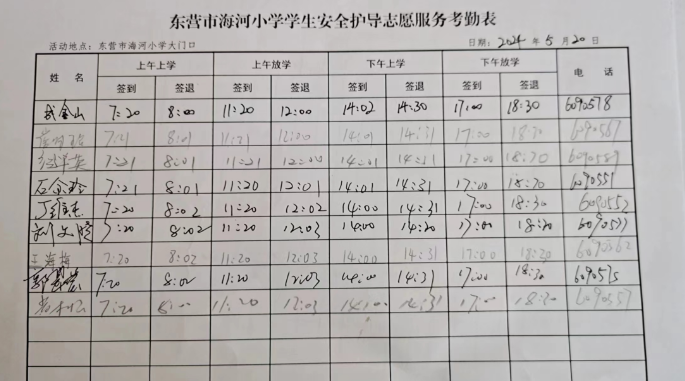 东营市海河小学学生安全护导志愿服务考勤表
活动地点：东营市海河小学大门口 日期：2024 年 5 月 20 日
姓 名 上午上学 上午放学 下午上学 下午放学 电 话
签到 签退 签到 签退 签到 签退 签到 签退
武金山 7:20 8:00 11:20 12:00 14:02 14:30 17:00 18:30 6090578
7:21 8:01 11:21 12:00 14:01 14:31 17:00 18:30 6090567
7:21 8:01 11:21 12:00 14:01 14:31 17:00 18:30
石金玲 7:21 8:01 11:20 12:01 14:01 14:31 17:00 18:30 6090551
7:20 8:02 11:20 12:02 14:00 14:31 17:00 18:30 6090552
刘文 7:20 8:02 11:20 12:03 14:00 14:20 17:00 18:20
王海梅 7:20 8:02 11:20 12:03 14:00 14:31 17:00 18:20 6090562
7:20 8:02 11:20 12:03 14:00 14:31 17:00 18:30
7:20 8:00 11:20 12:03 14:00 14:31 17:00 18:30 6090557